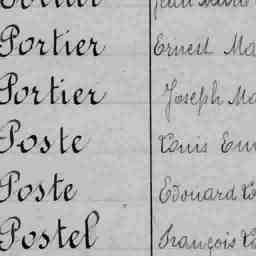 Portier Ernest Ma
Portier Joseph Ma
Poste Louis Em
Poste Edouard Lo
Postel François Lo